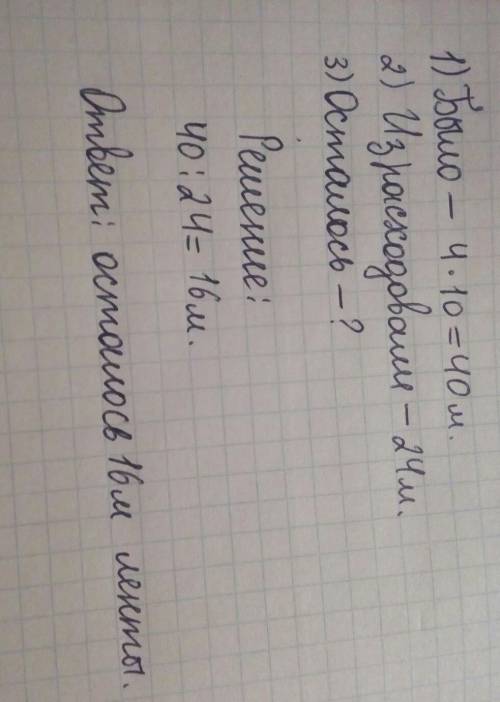 1) Было - 4 · 10 = 40 м.
2) Израсходовали - 24 м.
3) Осталось - ?
Решение:
40 : 24 = 16 м.
Ответ: осталось 16 м ленты.